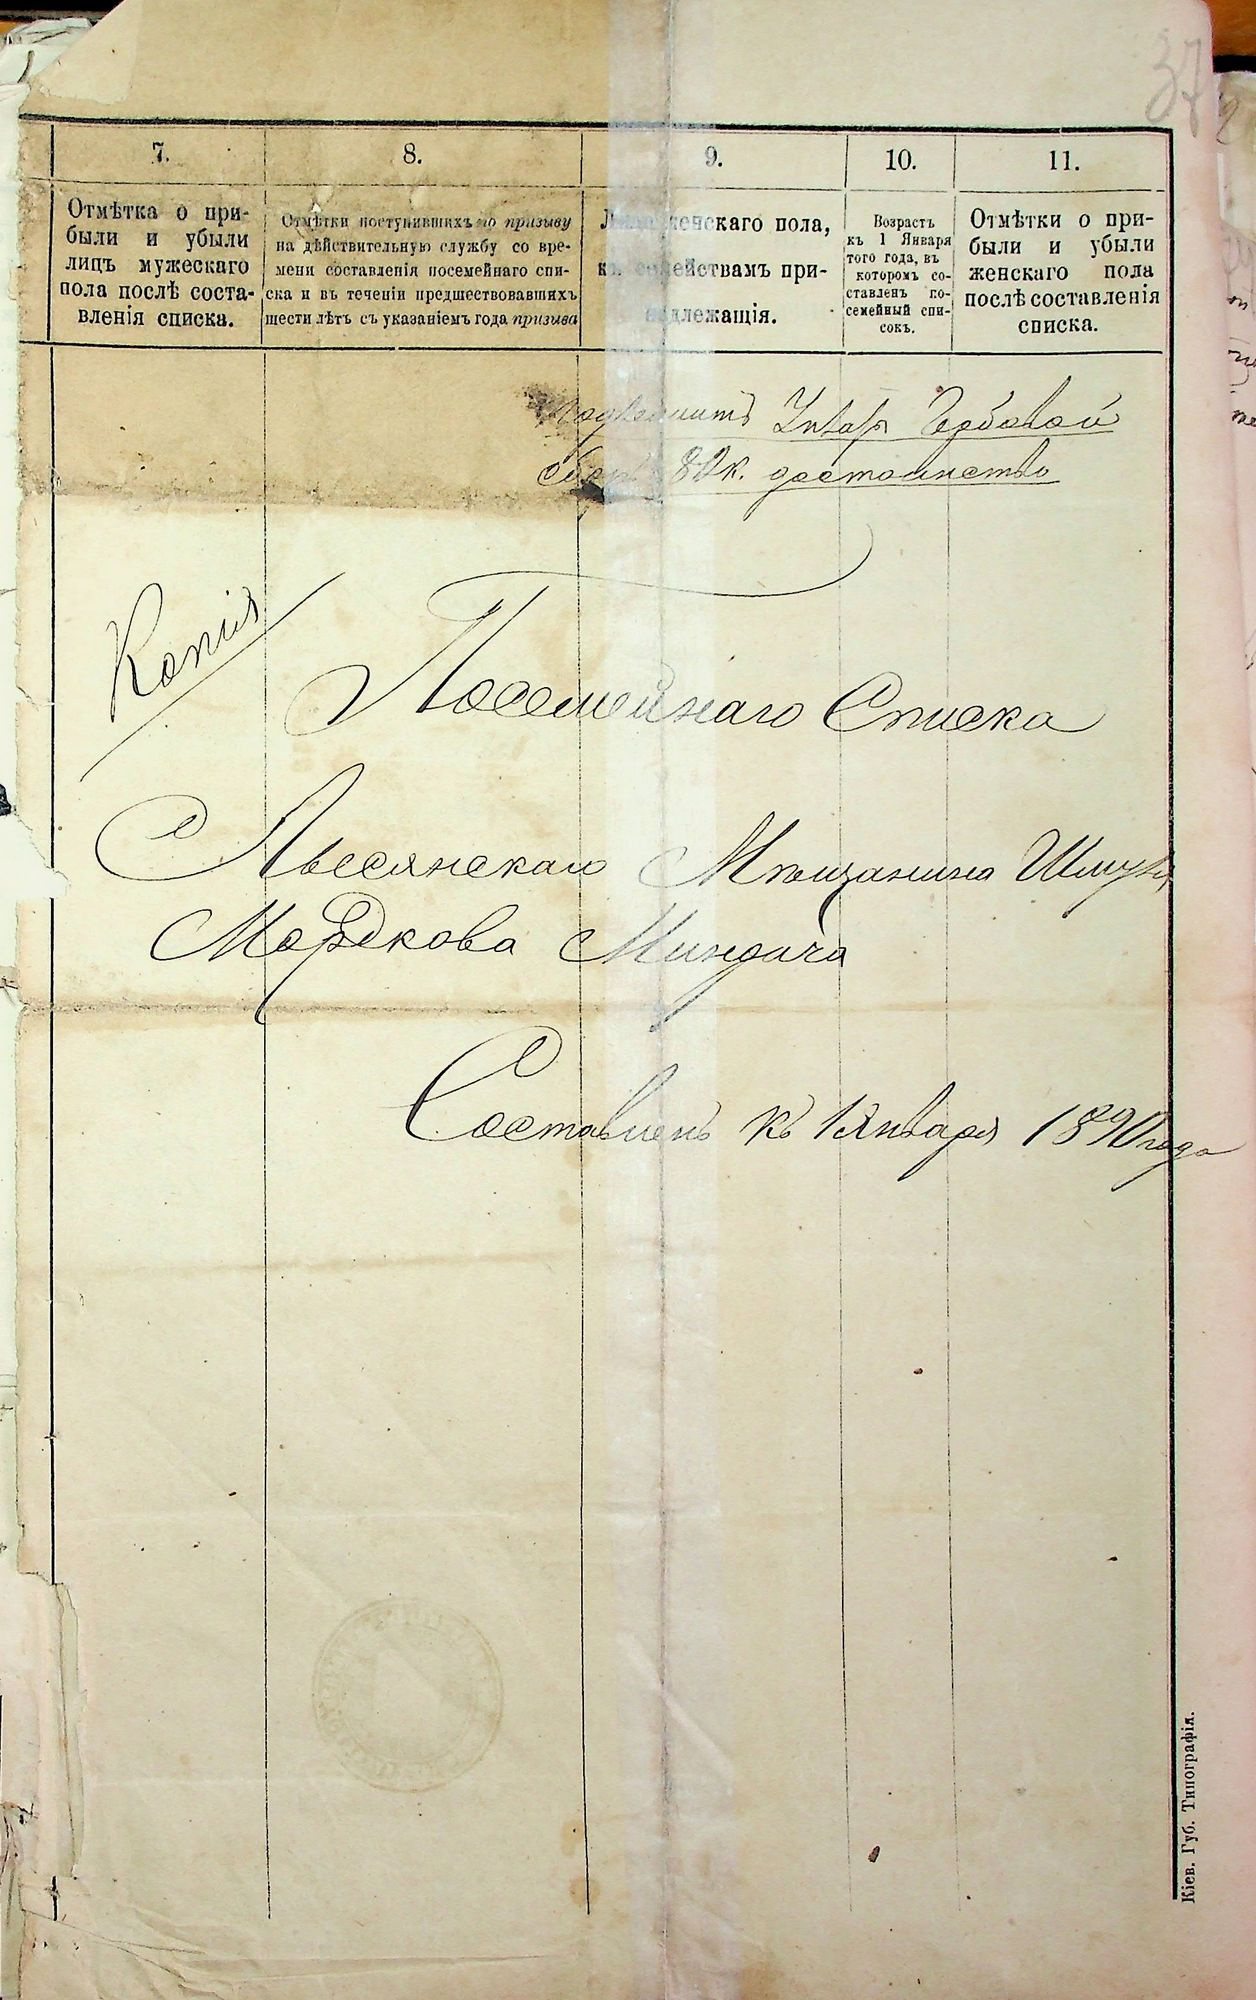 37
7.
8.
9.
10.
11.
Отмѣтка о при-
были и убыли
лицъ мужескаго
пола послѣ соста-
вленія списка.
Отмѣтки поступившихъ по призыву
на дѣйствительную службу со вре-
мени составленія посемейнаго спи-
ска и въ теченіи предшествовавшихъ
шести лѣтъ съ указаніемъ года призыва
Лица женскаго пола,
къ семействамъ при-
надлежащія.
Возрастъ
къ 1 Января
того года, въ
которомъ со-
ставленъ по-
семейный спи-
сокъ.
Отмѣтки о при-
были и убыли
женскаго пола
послѣ составленія
списка.
Гербовой
80 к. достоинство
Копія
Посемейнаго Списка
Лысянскаго Мѣщанина
Мордкова
Составленъ къ 1 Января 1890 года
Кіев. Губ. Типографія.